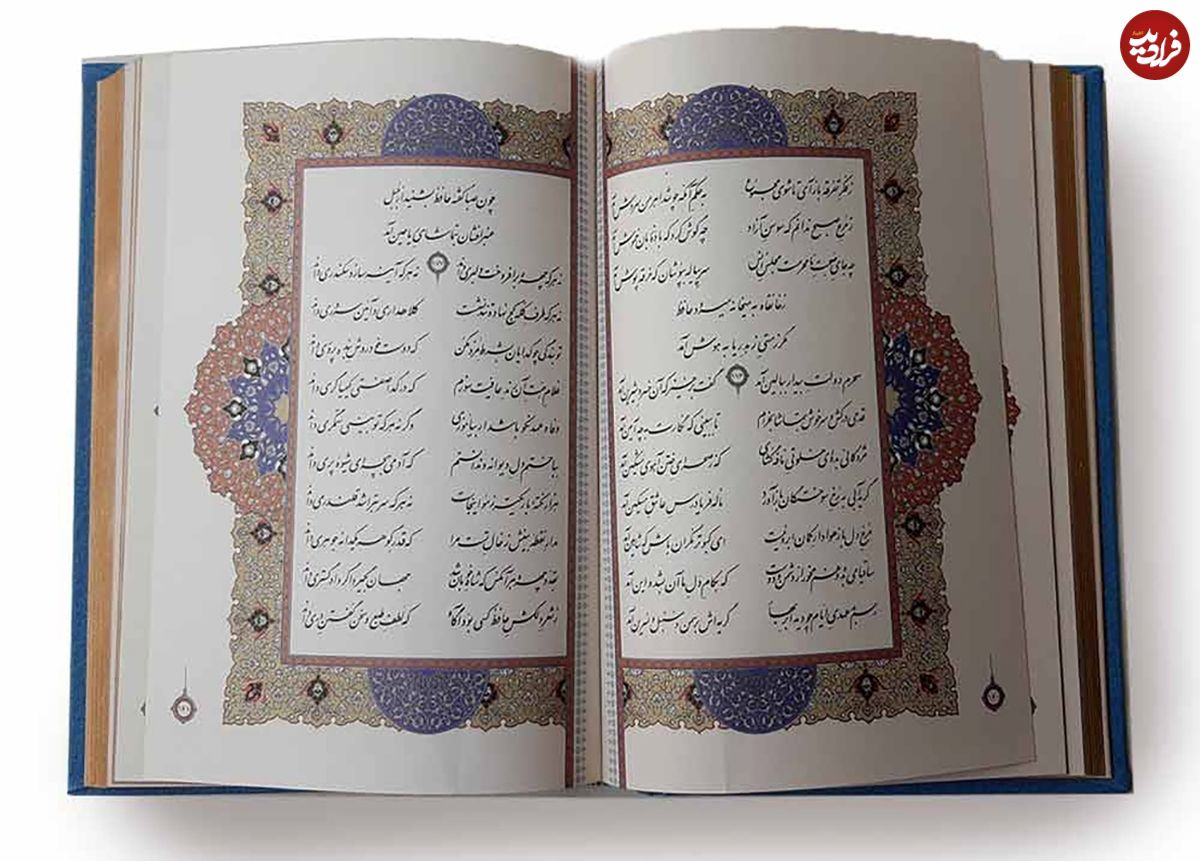 فرادید
ز فکر تفرقه باز آی تا شوی مجموع به حکم آنکه چو شد اهرمن سروش آمد
ز مرغ صبح ندانم که سوسن آزاد چه گوش کرد که با ده زبان خموش آمد
چه جای صحبت نامحرمست مجلس انس سر پیاله بپوشان که خرقه پوش آمد
ز خانقاه به میخانه میرود حافظ
مگر ز مستی زهد ریا به هوش آمد
سحرم دولت بیدار ببالین آمد گفت برخیز که آن خسرو شیرین آمد
قدحی درکش و سرخوش بتماشا بخرام تا ببینی که نگارت به چه آیین آمد
مژدگانی بده ای خلوتی نافه گشای که ز صحرای ختن آهوی مشکین آمد
گریه آبی به رخ سوختگان باز آورد ناله فریادرس عاشق مسکین آمد
مرغ دل باز هوادار کمان ابروئیست ای کبوتر نگران باش که شاهین آمد
ساقیا می بده و غم مخور از دشمن و دوست که بکام دل ما آن بشد و این آمد
رسم بدعهدی ایام چو دید ابر بهار گریه اش بر سمن و سنبل و نسرین آمد
چون صبا گفته حافظ بشنید از بلبل
عنبرافشان بتماشای ریاحین آمد
نه هر که چهره برافروخت دلبری داند ۱۷۷ نه هر که آینه سازد سکندری داند
نه هر که طرف کله کج نهاد و تند نشست کلاهداری و آئین سروری داند
تو بندگی چو گدایان بشرط مزد مکن که دوست خود روش بنده پروری داند
غلام همت آن رند عافیت سوزم که در گداصفتی کیمیاگری داند
وفا و عهد نکو باشد ار بیاموزی وگرنه هر که تو بینی ستمگری داند
بباختم دل دیوانه و ندانستم که آدمی بچه ای شیوه پری داند
هزار نکته باریکتر ز مو اینجاست نه هر که سر بتراشد قلندری داند
مدار نقطه بینش ز خال تست مرا که قدر گوهر یکدانه جوهری داند
بقد و چهره هر آنکس که شاه خوبان شد جهان بگیرد اگر دادگستری داند
ز شعر دلکش حافظ کسی بود آگاه که لطف طبع و سخن گفتن دری داند